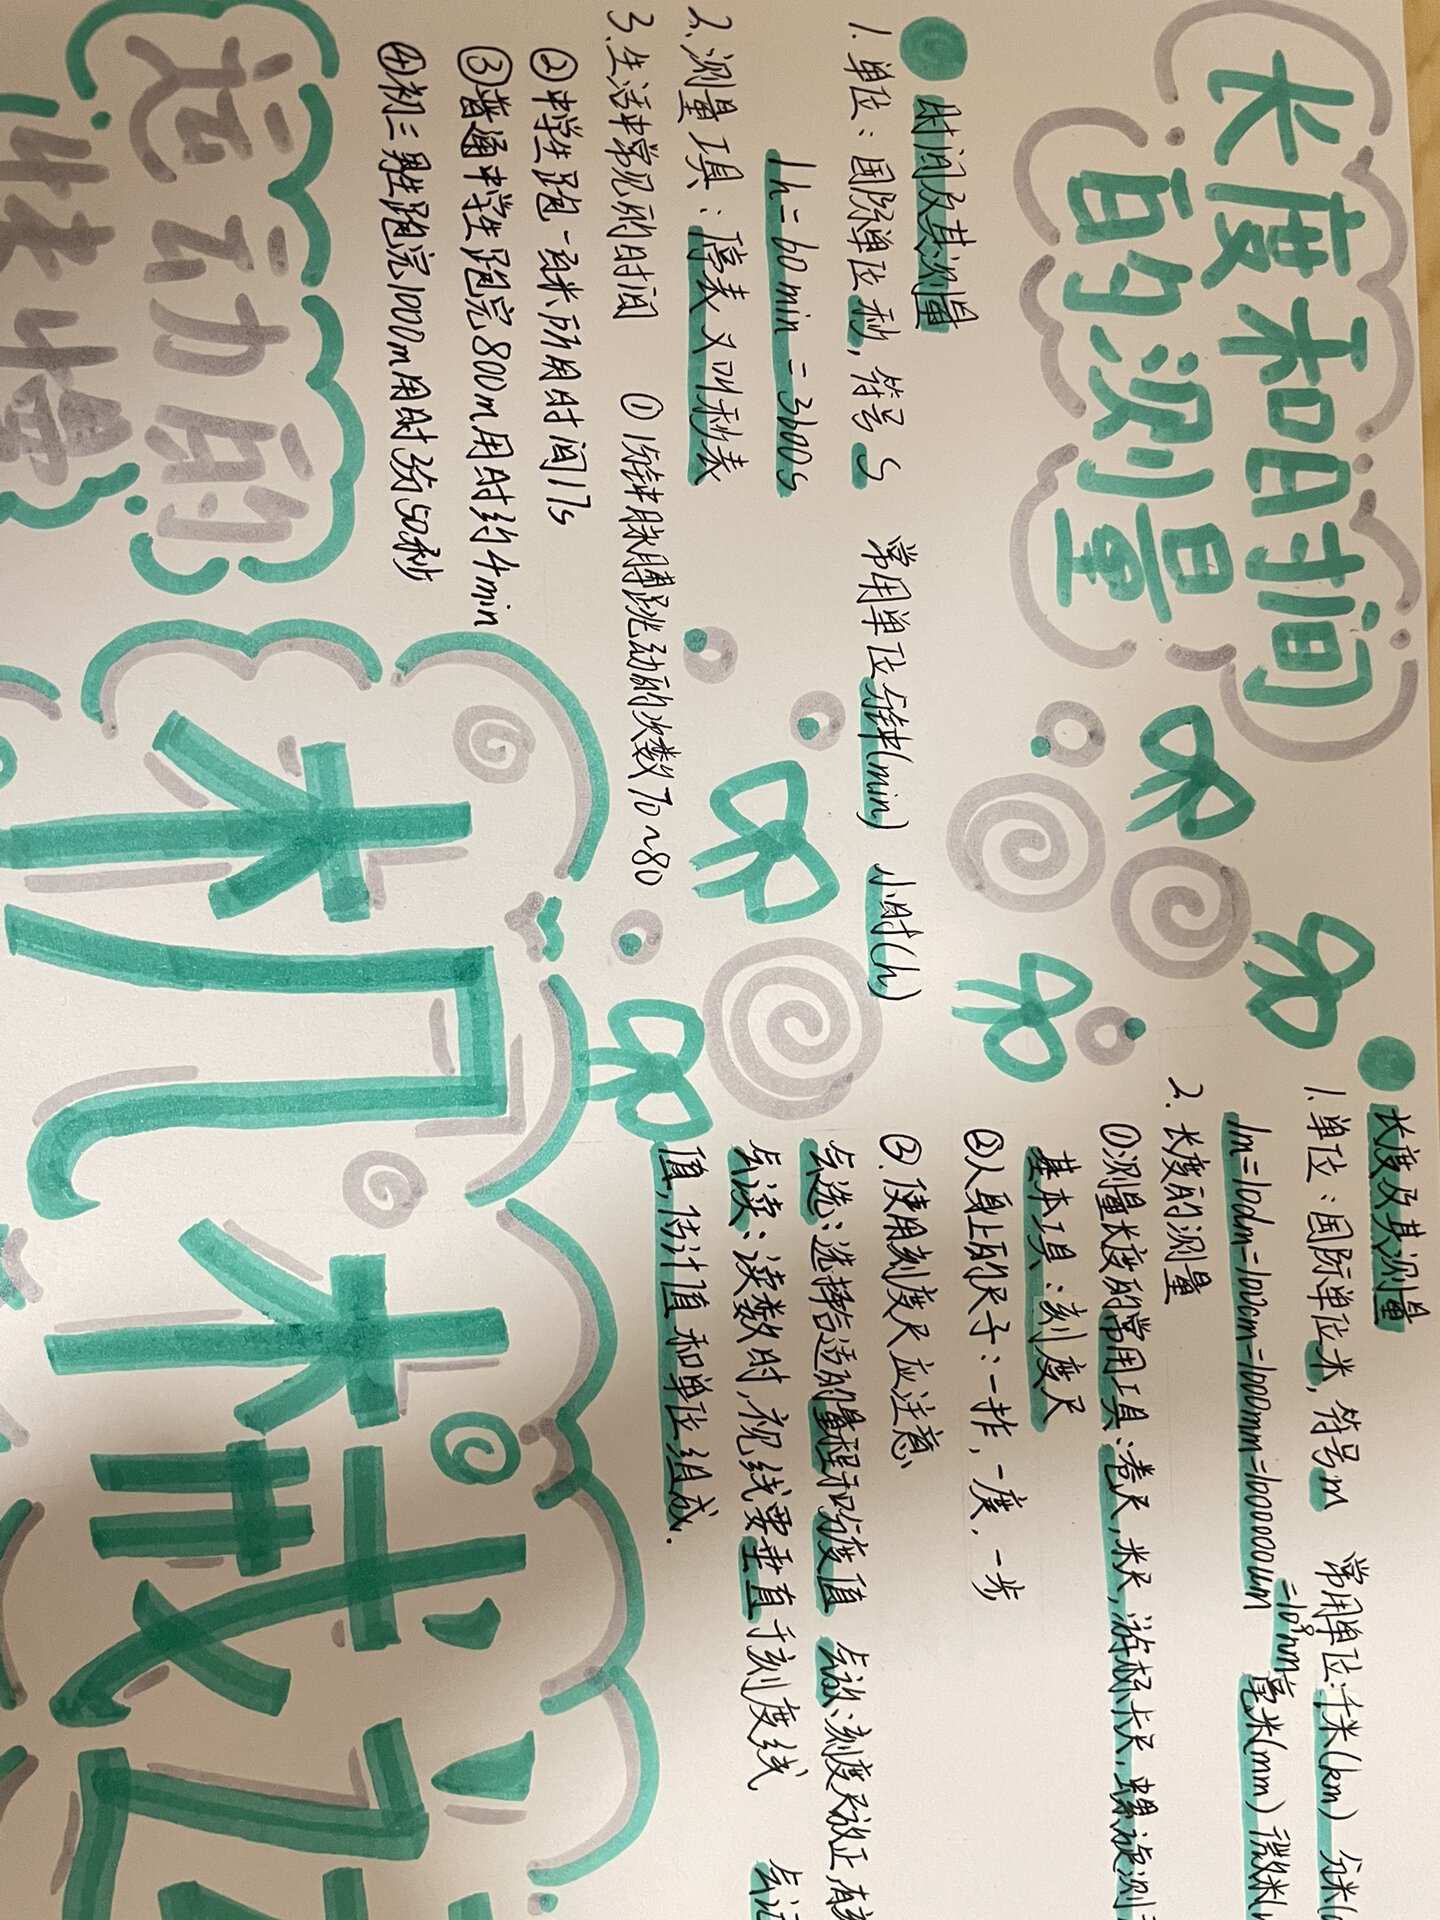 长度和时间
的测量
长度及其测量
1.单位:国际单位米,符号m 常用单位:千米(km) 分米(
1m=10dm=100cm=1000mm=1000000um
=10⁹nm 毫米(mm) 微米(
2.长度的测量
①测量长度的常用工具:卷尺,米尺,游标卡尺,螺旋测
基本工具:刻度尺
②人身上的尺子:一拃,一庹,一步
③.使用刻度尺应注意
会选:选择合适的量程和分度值 会放:刻度尺放正,有刻
会读:读数时,视线要垂直于刻度线 会记
值,估计值和单位组成.
时间及其测量
1.单位:国际单位秒,符号S 常用单位分钟(min) 小时(h)
1h=60min=3600s
2.测量工具:停表又叫秒表
3.生活中常见的时间 ①1分钟脉膊跳动的次数70~80
②中学生跑一百米所用时间17s
③普通中学生跑完800m用时约4min
④初三男生跑完1000m用时3分50秒
机械运
运动的